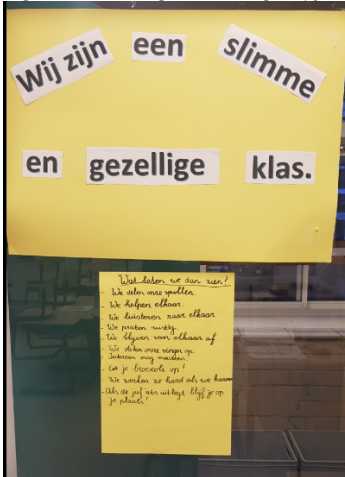 Wij zijn een slimme
en gezellige klas.
Wat laten we dan zien?
- We delen onze spullen.
- We helpen elkaar.
- We luisteren naar elkaar
- We praten rustig.
- We blijven van elkaar af
- We steken onze vinger op.
- Iedereen mag meedoen!
- Eet je broccoli op!
- We werken zo hard als we kunnen
- Als de juf iets uitlegt blijf je op
je plaats!